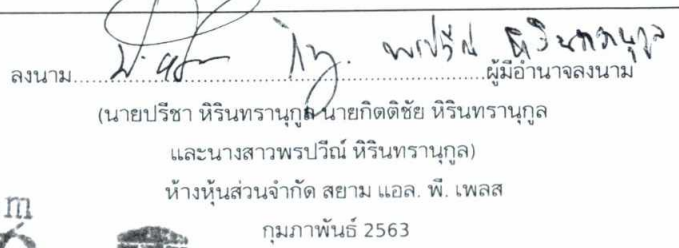 พรปวีณ์ หิรินทรานุกูล
ลงนาม................................................ผู้มีอำนาจลงนาม
(นายปรีชา หิรินทรานุกูล นายกิตติชัย หิรินทรานุกูล
และนางสาวพรปวีณ์ หิรินทรานุกูล)
ห้างหุ้นส่วนจำกัด สยาม แอล. พี. เพลส
กุมภาพันธ์ 2563
m